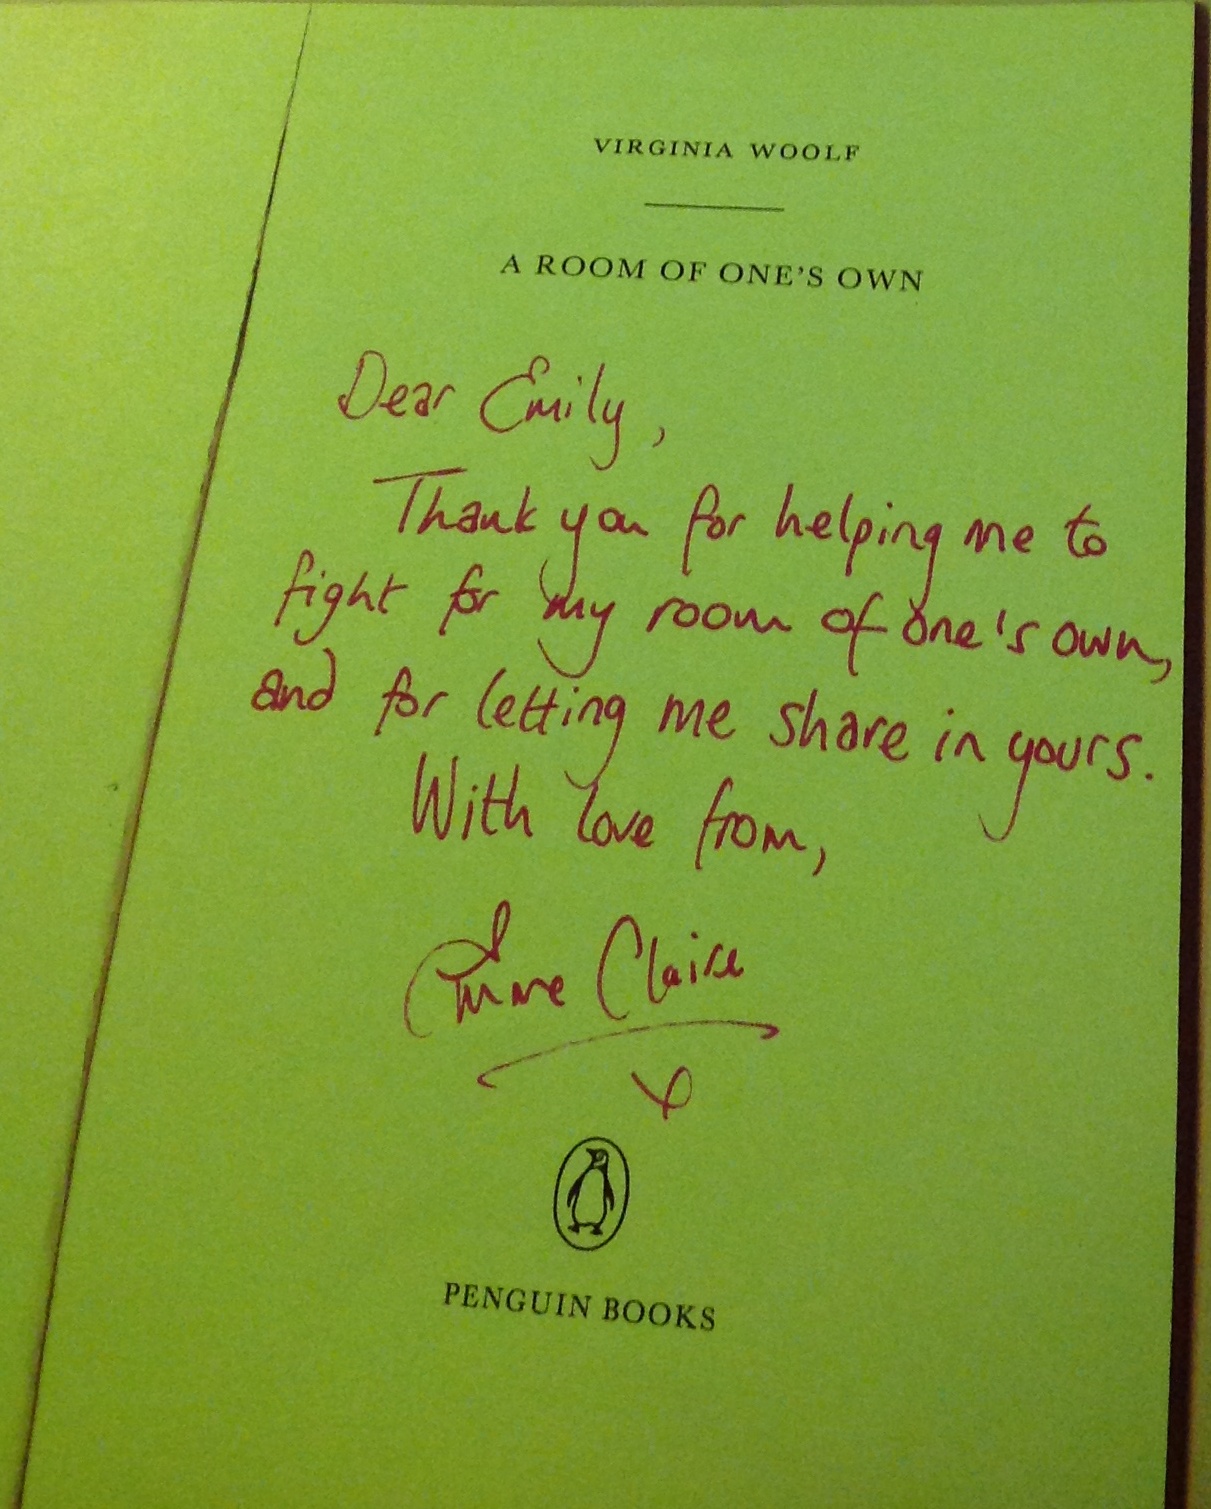 VIRGINIA WOOLF
A ROOM OF ONE'S OWN
Dear Emily,
Thank you for helping me to
fight for my room of one's own,
and for letting me share in yours.
With love from,
Emma Claire
x
PENGUIN BOOKS